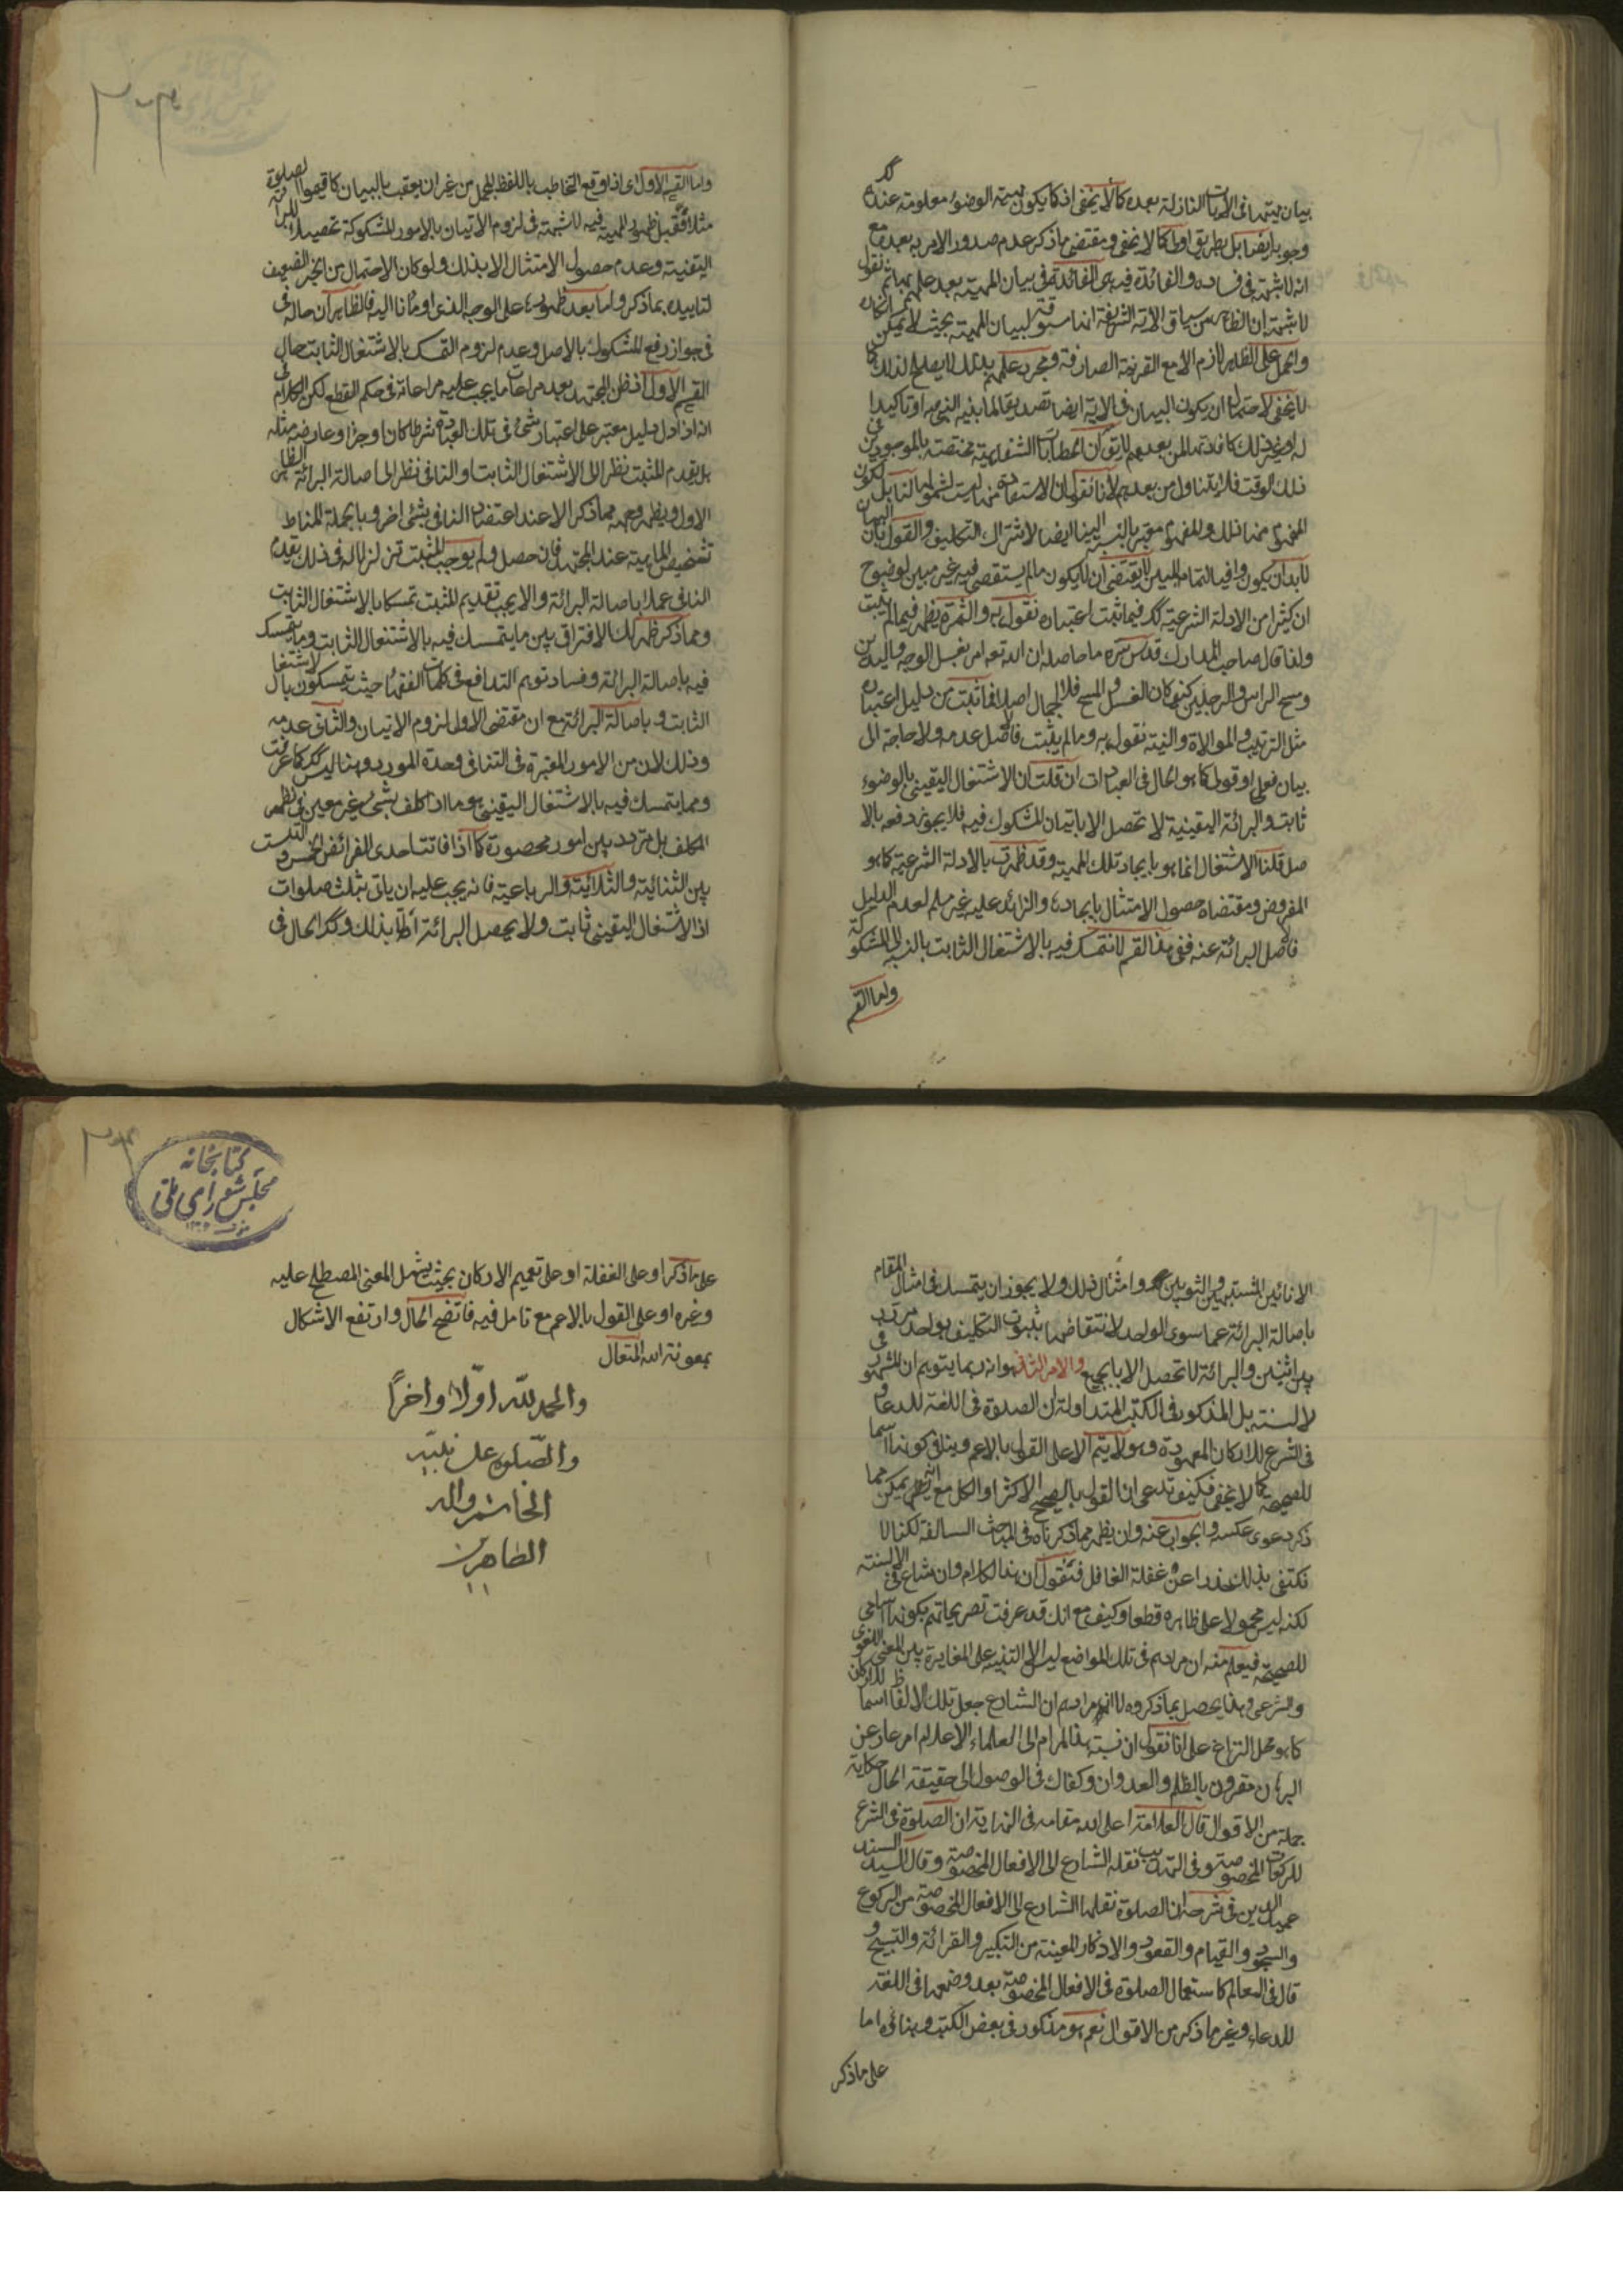 بيان مهيتها فى الآيات النازلة بعده كما لا يخفى اذ كما يكون مهية الوضوء معلومة عندهم كك
وجوبها ايضا بل بطريق اولى كما لا يخفى ومقتضى ما ذكر عدم صدور الامر به بعده مع
انه لا شبهة فى فساده والفائدة فيه هى الفائدة فى بيان المهية بعد علمهم بها ثم نقول
لا شبهة ان الظاهر من سياق الآية الشريفة انها مسوقة لبيان المهية بحيث لا يمكن انكاره
والحمل على الظاهر لازم الا مع القرينة الصارفة ومجرد علمهم بذلك لا يصلح لذلك كما
لا يخفى لاحتمال ان يكون البيان فى الآية ايضا تصديقا لما بينه النبى ص او تأكيدا
له او غير ذلك كافادتها لمن بعدهم لا يق ان الخطابات الشفاهية مختصة بالموجودين فى
ذلك الوقت فلا يتناول من بعدهم لأنا نقول ان الاستفادة منها ليست لشمولها لنا بل لكون
المفهوم منها ذلك والمفهوم معتبر بالنسبة الينا ايضا لاشتراك التكليف والقول بان البيان
لابد ان يكون وافيا لتمام المبين لا يقتضى ان لا يكون ما لم يستقصى فيه غير مبين لوضوح
ان كثيرا من الادلة الشرعية كك فيما ثبت اعتباره نقول به والثمرة يظهر فيما لم يثبت
ولذا قال صاحب المدارك قدس سره ما حاصله ان الله تعه امر بغسل الوجه واليدين
ومسح الراس والرجلين كيف كان الغسل والمسح فلا اجمال اصلا فما ثبت من دليل اعتباره
مثل الترتيب والموالاة والنية نقول به وما لم يثبت فالاصل عدمه ولا حاجة الى
بيان فعلى او قولى كما هو الحال فى العبادات ان قلت ان الاشتغال اليقينى بالوضوء
ثابت والبرائة اليقينية لا تحصل الا باتيان المشكوك فيه فلا يجوز دفعه بالا
صل قلنا الاشتغال انما هو بايجاد تلك المهية وقد ظهرت بالادلة الشرعية كما هو
المفروض ومقتضاه حصول الامتثال بايجادها والزائد عليه غير مسلم لعدم الدليل
فالاصل البرائة عنه ففى هذا القسم لا نتمسك فيه بالاشتغال الثابت بالنسبة الى المشكوك
واما القسم
واما القسم الاول اى اذا وقع التخاطب باللفظ المجمل من غير ان يعقب بالبيان كاقيموا الصلوة
مثلا فقبل ظهور المهية فيه لا شبهة فى لزوم الاتيان بالامور المشكوكة تحصيلا للبرائة
اليقينية وعدم حصول الامتثال الا بذلك ولو كان الاحتمال من الخبر الضعيف
لتاييده بما ذكر واما بعد ظهورها على الوجه الذى اومأنا اليه فالظاهر ان حاله فى
فى جواز رفع المشكوك بالاصل وعدم لزوم التمسك بالاشتغال الثابت حال
القسم الاول اذ ظن المجتهد بعد مراعات ما يجب عليه مراعاته فى حكم القطع لكن الكلام فى
انه اذا دل دليل معتبر على اعتبار شئ فى تلك العبادة شرطا كان او جزءا وعارضه مثله
بل يقدم المثبت نظرا الى الاشتغال الثابت او النافى نظرا الى اصالة البرائة الظاهر
الاول ويظهر وجهه مما ذكر الا عند اعتضاد النافى بشئ اخر وبالجملة المناط
تشخيص الماهية عند المجتهد فان حصل ولم يوجب المثبت تزلزلا له فى ذلك يقدم
النافى عملا باصالة البرائة والا يجب تقديم المثبت تمسكا بالاشتغال الثابت
ومما ذكر ظهر لك الافتراق بين ما يتمسك فيه بالاشتغال الثابت وما يتمسك
فيه باصالة البرائة وفساد توهم التدافع فى كلمات الفقهاء حيث يتمسكون بالاشتغا
الثابت وباصالة البرائة مع ان مقتضى الاول لزوم الاتيان والثانى عدمه
وذلك لان من الامور المعتبرة فى التنافى وحدة المورد وهنا ليس كك كما عرفت
ومما يتمسك فيه بالاشتغال اليقينى هو ما اذا كلف بشئ غير معين فى نظر
المكلف بل متردد بين امور محصورة كما اذا فاتت احدى الفرائض الخمس والتبست
بين الثنائية والثلاثية والرباعية فانه يجب عليه ان ياتى بثلث صلوات
اذ الاشتغال اليقينى ثابت ولا يحصل البرائة الا بذلك وكك الحال فى
كتابخانه
مجلس شوراى ملى
الانائين المشتبهين والثوبين وامثال ذلك ولا يجوز ان يتمسك فى امثال المقام
باصالة البرائة عما سوى الواحد لانتقاضها بثبوت التكليف بواحد مردد
بين اثنين والبرائة لا تحصل الا بالجميع والامر الثانى هو انه ربما يتوهم ان المشهور فى
الالسنة بل المذكور فى الكتب المتداولة ان الصلوة فى اللغة للدعاء و
فى الشرع للاركان المعهودة وهو لا يتم الا على القول بالاعم وينافى كونها اسما
للصحيحة كما لا يخفى فكيف تدعى ان القول بالصحيح الاكثر او الكل مع انه يمكن مما
ذكر دعوى عكسه والجواب عنه وان يظهر مما ذكرناه فى المباحث السالفة لكنا لا
نكتفى بذلك حذرا عن غفلة الغافل فنقول ان هذا الكلام وان شاع فى الالسنة
لكنه ليس محمولا على ظاهره قطعا وكيف مع انك قد عرفت تصريحاتهم بكونها اسامى
للصحيحة فيعلم منه ان مرادهم فى تلك المواضع ليس الا التنبيه على المغايرة بين المعنى اللغوى
والشرعى وهذا يحصل بما ذكروه لا ان مرادهم ان الشارع جعل تلك الالفاظ اسما للاركان
كما هو محل النزاع على انا نقول ان نسبة هذا المرام الى العلماء الاعلام امر عار عن
البرهان مقرون بالظلم والعدوان وكفاك فى الوصول الى حقيقة الحال حكاية
جملة من الاقوال قال العلامة اعلى الله مقامه فى النهاية ان الصلوة فى الشرع
للركعات المخصوصة وفى التهذيب نقله الشارع الى الافعال المخصوصة وقال السيد السند
عميد الدين فى شرحه ان الصلوة نقلها الشارع الى الافعال المخصوصة من الركوع
والسجود والقيام والقعود والاذكار المعينة من التكبير والقرائة والتسبيح و
قال فى المعالم كاستعمال الصلوة فى الافعال المخصوصة بعد وضعها فى اللغة
للدعاء وغير ما ذكر من الاقوال نعم هو مذكور فى بعض الكتب وبنائه اما
على ما ذكر
على ما ذكر او على الغفلة او على تعميم الاركان بحيث يشمل المعنى المصطلح عليه
وغيره او على القول بالاعم مع تامل فيه فاتضح الحال وارتفع الاشكال
بمعونة الله المتعال
والحمد لله اوّلا واخرًا
والصّلوة على نبيّه
الخاتم واله
الطاهرين
كتابخانه
مجلس شوراى ملّى